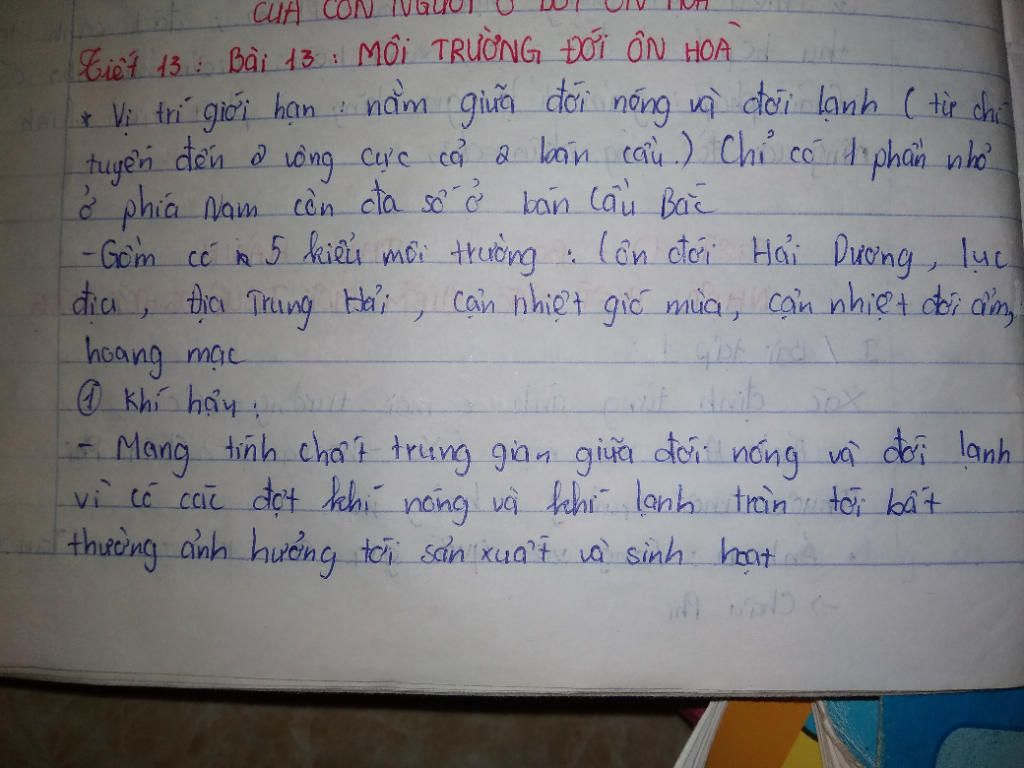 CỦA CON NGƯỜI Ở ĐỚI ÔN HOÀ
Tiết 13: Bài 13: MÔI TRƯỜNG ĐỚI ÔN HOÀ
* Vị trí giới hạn: nằm giữa đới nóng và đới lạnh (từ chí
tuyến đến 2 vòng cực cả 2 bán cầu.) Chỉ có 1 phần nhỏ
ở phía Nam còn đa số ở bán Cầu Bắc
- Gồm có 5 kiểu môi trường: (ôn đới Hải Dương, lục
địa, Địa Trung Hải, cận nhiệt gió mùa, cận nhiệt đới ẩm,
hoang mạc
① Khí hậu:
- Mang tính chất trung gian giữa đới nóng và đới lạnh
vì có các đợt khí nóng và khí lạnh tràn tới bất
thường ảnh hưởng tới sản xuất và sinh hoạt